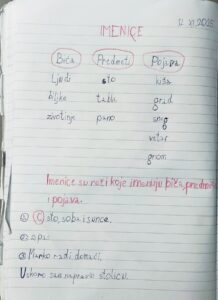 12. XI 2025
IMENICE
Bića Predmeti Pojava
Ljudi sto kiša
biljke tabla grad
životinje pano snijeg
vetar
grom
Imenice su reči koje imenuju bića, predmete
i pojava.
sto, soba i sunce.
Marko radi domaći.
sam napravio stolicu.